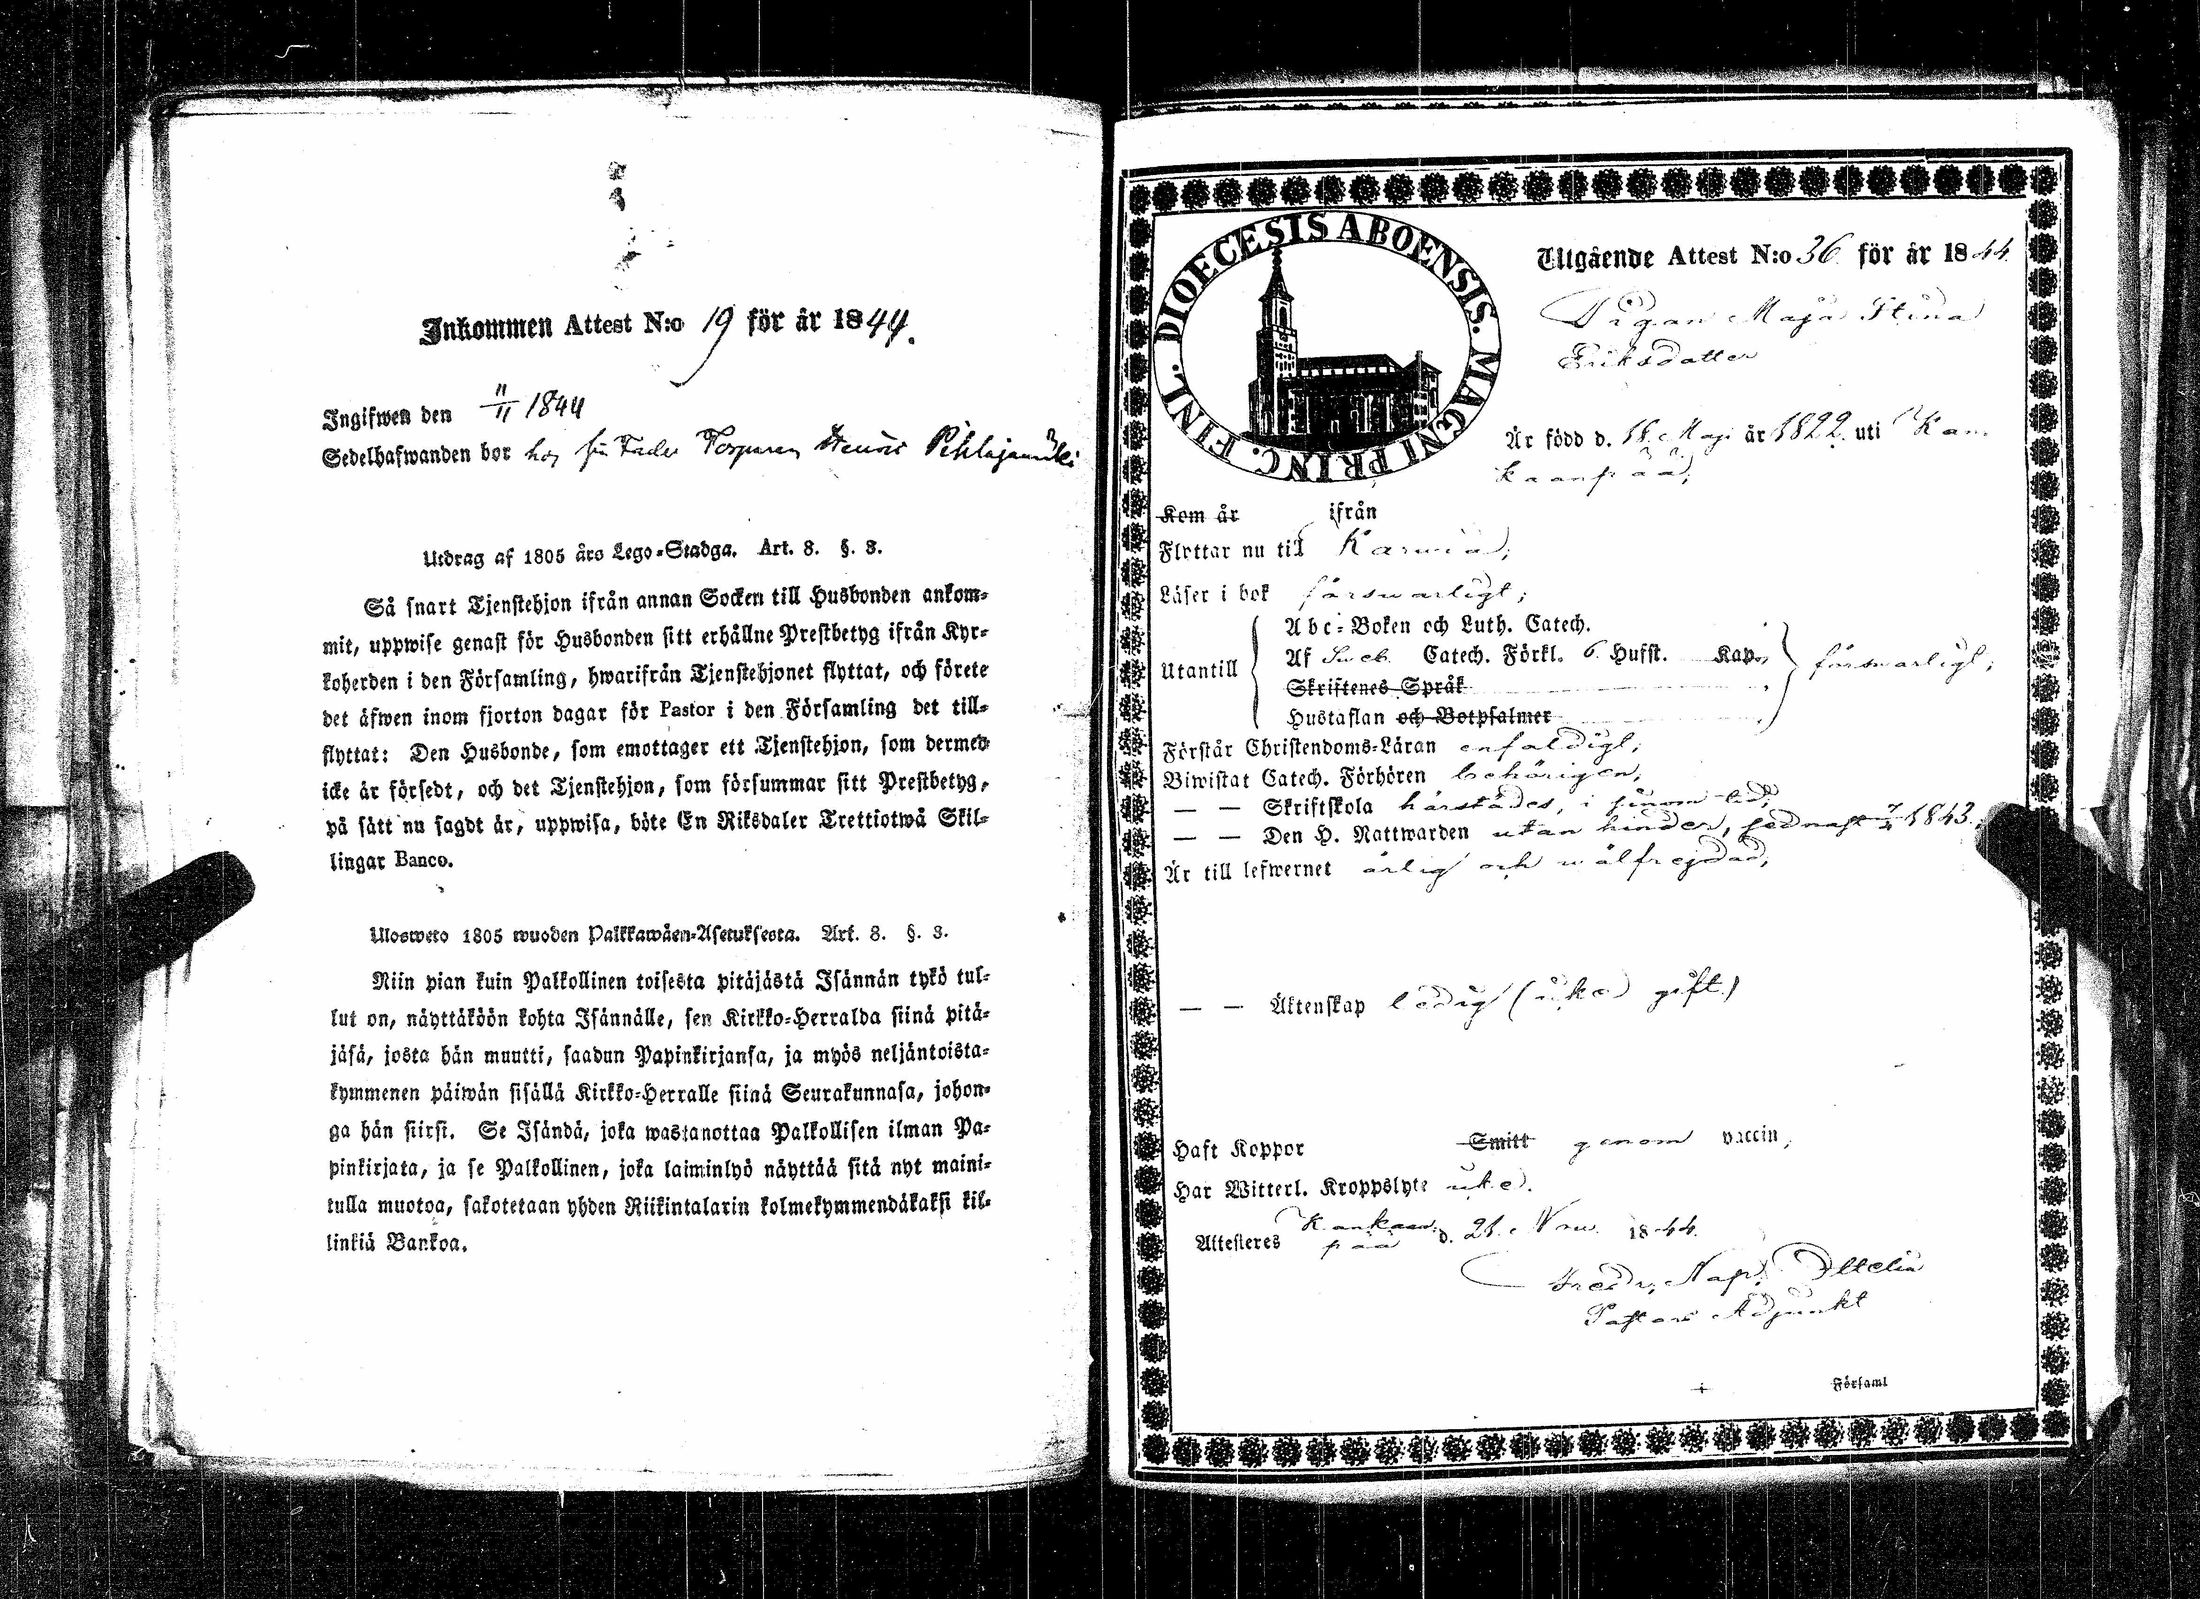 Inkommen Attest N:o 19 för år 1844.
Ingifwen den 11/11 1844
Sedelhafwanden bor hos sin Fader Torparen Pihlajamäki
Utdrag af 1805 års Lego-Stadga. Art. 8. §. 3.
Så snart Tjenstehjon ifrån annan Socken till Husbonden ankom-
mit, uppwise genast för Husbonden sitt erhållne Prestbetyg ifrån Kyr-
koherden i den Församling, hwarifrån Tjenstehjonet flyttat, och förete
det äfwen inom fjorton dagar för Pastor i den Församling det till-
flyttat: Den Husbonde, som emottager ett Tjenstehjon, som dermed
icke är försedt, och det Tjenstehjon, som försummar sitt Prestbetyg,
på sätt nu sagdt är, uppwisa, böte En Riksdaler Trettiotwå Skil-
lingar Banco.
Ulosweto 1805 wuoden Palkkawäen-Asetuksesta. Art. 8. §. 3.
Niin pian kuin Palkollinen toisesta pitäjästä Isännän tykö tul-
lut on, näyttäköön kohta Isännälle, sen Kirkko-Herralda siinä pitä-
jäsä, josta hän muutti, saadun Papinkirjansa, ja myös neljäntoista-
kymmenen päiwän sisällä Kirkko-Herralle siinä Seurakunnasa, johon-
ga hän siirsi. Se Isändä, joka wastanottaa Palkollisen ilman Pa-
pinkirjata, ja se Palkollinen, joka laiminlyö näyttää sitä nyt maini-
tulla muotoa, sakotetaan yhden Riikintalarin kolmekymmendäkaksi kil-
linkiä Bankoa.
DIOECESIS ABOENSIS. MAGNI PRINC. FINL.
Utgående Attest N:o 36 för år 1844.
Pigan Maja Stina
Eriksdotter
Är född d. 18. Maji år 1822. uti Kan-
kaanpää;
Kom år ifrån
Flyttar nu till Karwia;
Läser i bok förswarligt;
Abc-Boken och Luth. Catech.
Utantill Af Sweb. Catech. Förkl. 6. Hufst. Kap. förswarligt;
Skriftenes Språk
Hustaflan och Botpsalmer
Förstår Christendoms-Läran enfaldigt;
Biwistat Catech. Förhören behörigen;
— — Skriftskola härstädes, i sinom tid;
— — Den H. Nattwarden utan hinder, sednast 1843.;
Är till lefwernet ärlig och wälfrejdad;
— — Äktenskap ledig (icke gift)
Haft Koppor Smitt genom vaccin;
Har Witterl. Kroppslyte icke.
Attesteres Kankaan-
pää d. 21. Nov. 1844.
Fredr. Nap.
Pastors Adjunkt
Församl